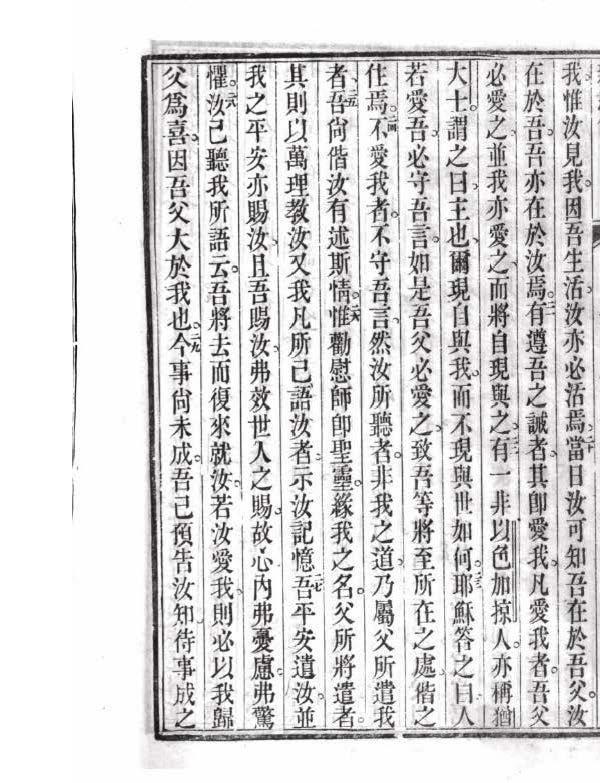 我惟汝見我因吾生活汝亦必活焉二十當日汝可知吾在於吾父汝
在於吾吾亦在於汝焉二一有遵吾之誡者其卽愛我凡愛我者吾父
必愛之並我亦愛之而將自現與之二二有一非以色加掠人亦稱猶
大士謂之曰主也爾現自與我而不現與世如何二三耶穌答之曰人
若愛吾必守吾言如是吾父必愛之致吾等將至所在之處偕之
住焉二四不愛我者不守吾言然汝所聽者非我之道乃屬父所遣我
者二五吾尚偕汝有述斯情二六惟勸慰師卽聖靈緣我之名父所將遣者
其則以萬理教汝又我凡所已語汝者示汝記憶二七吾平安遺汝並
我之平安亦賜汝且吾賜汝弗效世人之賜故心內弗憂慮弗驚
懼二八汝已聽我所語云吾將去而復來就汝若汝愛我則必以我歸
父爲喜因吾父大於我也二九今事尚未成吾已預告汝知待事成之